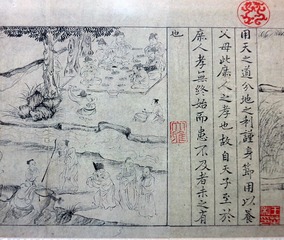 用天之道分地之利謹身節用以養
父母此庶人之孝也故自天子至於
庶人孝無終始而患不及者未之有
也